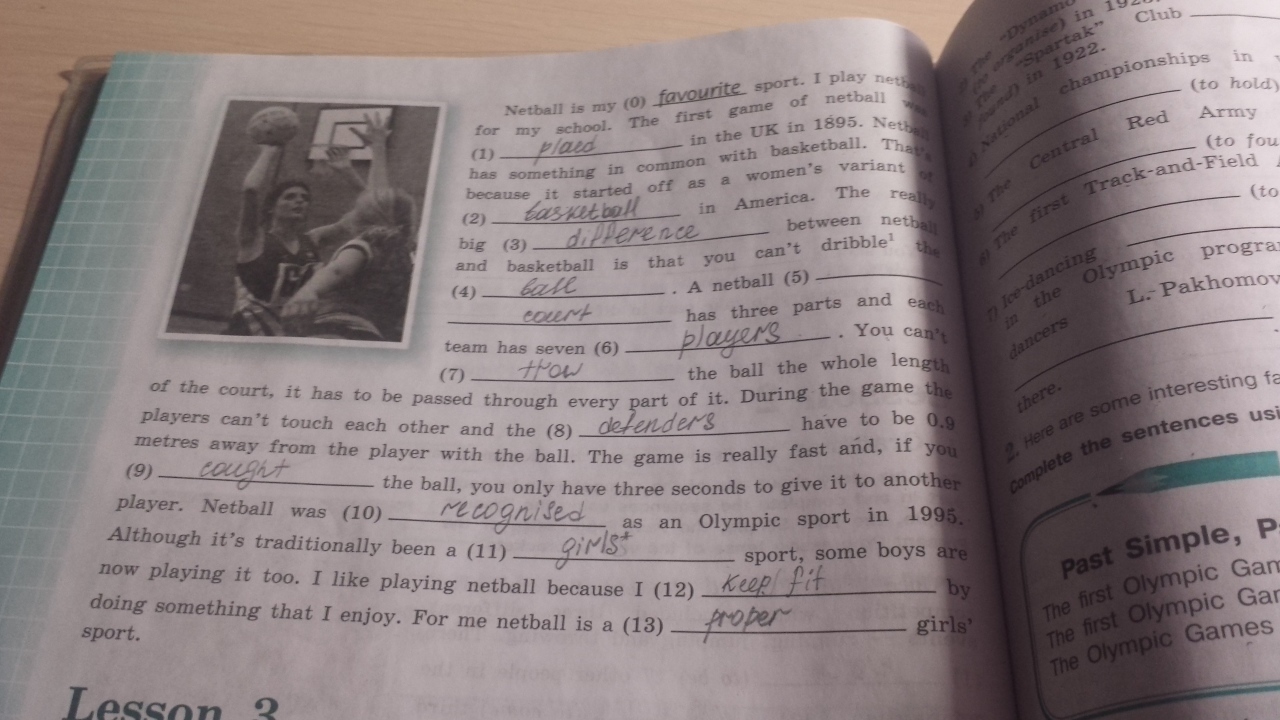 Netball is my (0) favourite sport. I play netball
for my school. The first game of netball was
(1) plaed in the UK in 1895. Netball
has something in common with basketball. That's
because it started off as a women's variant of
(2) basketball in America. The really
big (3) difference between netball
and basketball is that you can't dribble¹ the
(4) ball . A netball (5)
court has three parts and each
team has seven (6) players . You can't
(7) trow the ball the whole length
of the court, it has to be passed through every part of it. During the game the
players can't touch each other and the (8) defenders have to be 0.9
metres away from the player with the ball. The game is really fast and, if you
(9) caught the ball, you only have three seconds to give it to another
player. Netball was (10) recognised as an Olympic sport in 1995.
Although it's traditionally been a (11) girls' sport, some boys are
now playing it too. I like playing netball because I (12) keep fit by
doing something that I enjoy. For me netball is a (13) proper girls'
sport.
Lesson 3
"Dynamo
(to organise) in
The "Spartak" Club
in 1922.
National championships in
(to hold)
The Central Red Army
The first Track-and-Field
(to
Ice-dancing
in the Olympic
dancers L. Pakhomov
there.
2. Here are some interesting
Complete the sentences
Past Simple,
The first Olympic
The first Olympic
The Olympic Games